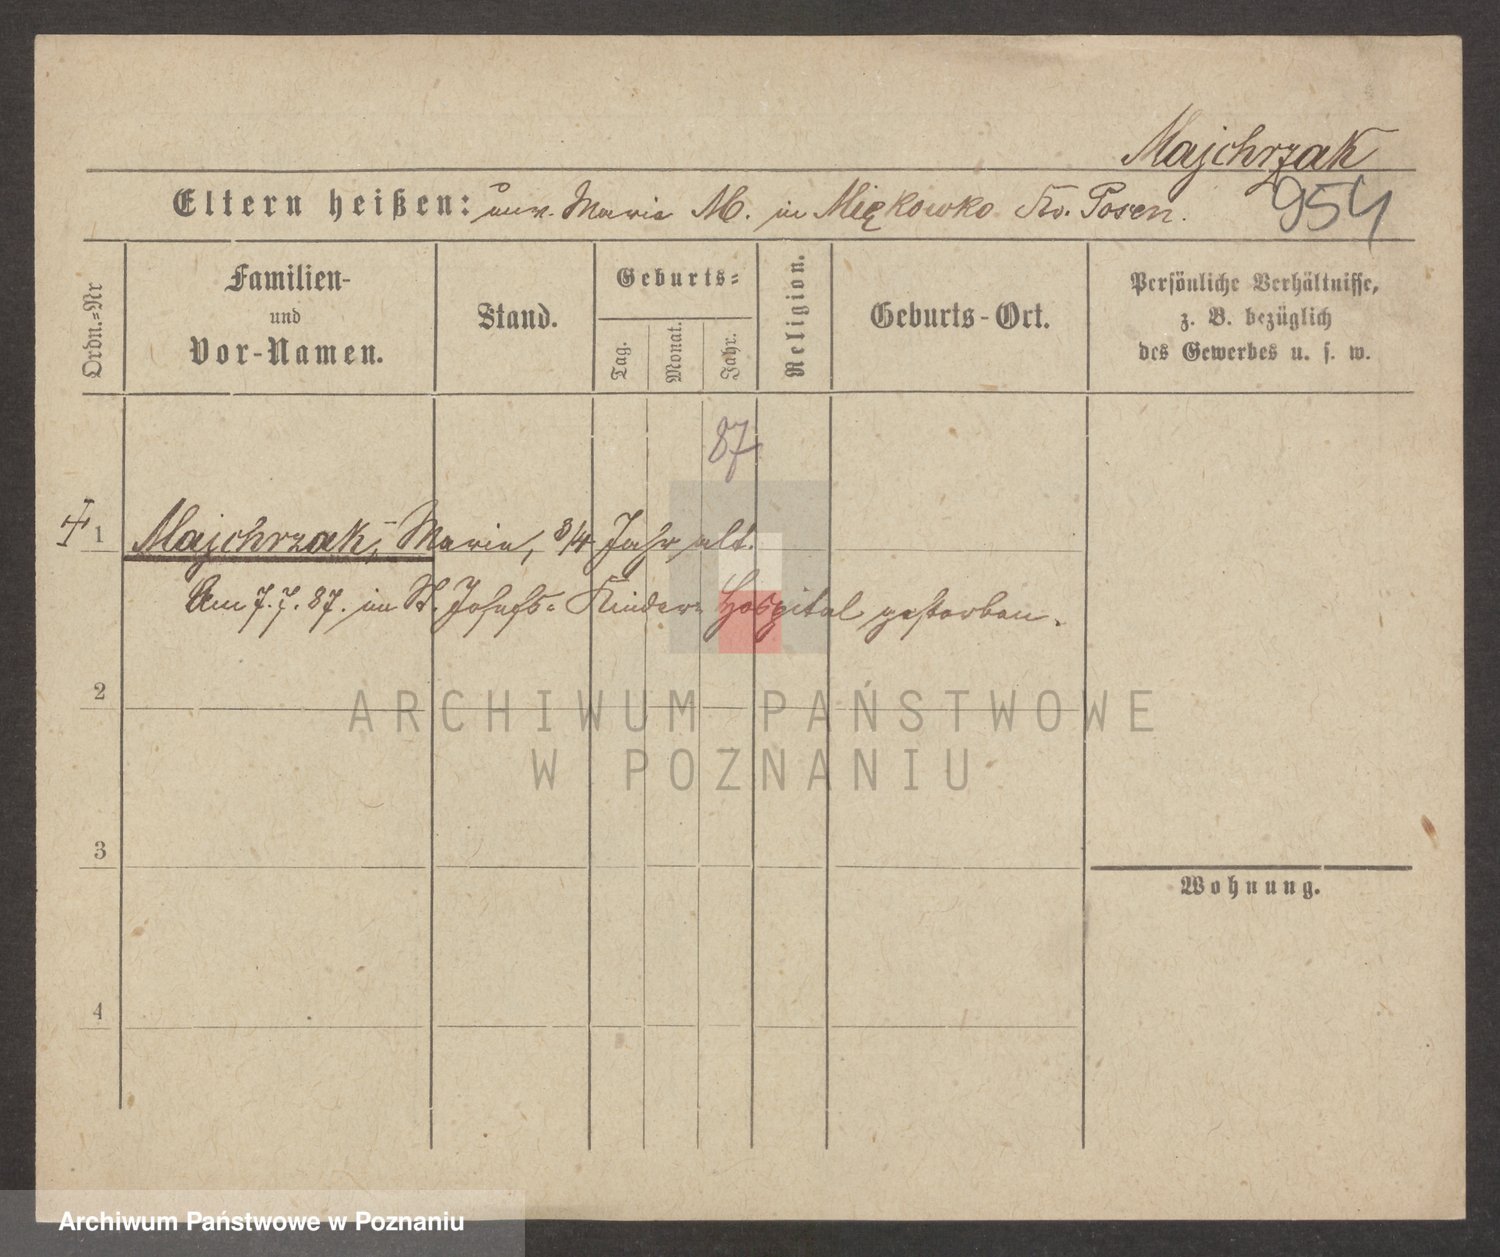 Majchrzak
Eltern heißen: unv. Maria M. in Miękowko Kr. Posen.
954
Ordn.=Nr
Familien-
und
Vor-Namen.
Stand.
Geburts=
Tag.
Monat.
Jahr.
Religion.
Geburts-Ort.
Persönliche Verhältnisse,
z. B. bezüglich
des Gewerbes u. s. w.
87
1 Majchrzak, Maria, 3/4 Jahr alt.
Am 7.7.87. im St. Josefs= Kinder= Hospital gestorben.
2
ARCHIWUM PAŃSTWOWE
W POZNANIU
3
Wohnung.
4
Archiwum Państwowe w Poznaniu